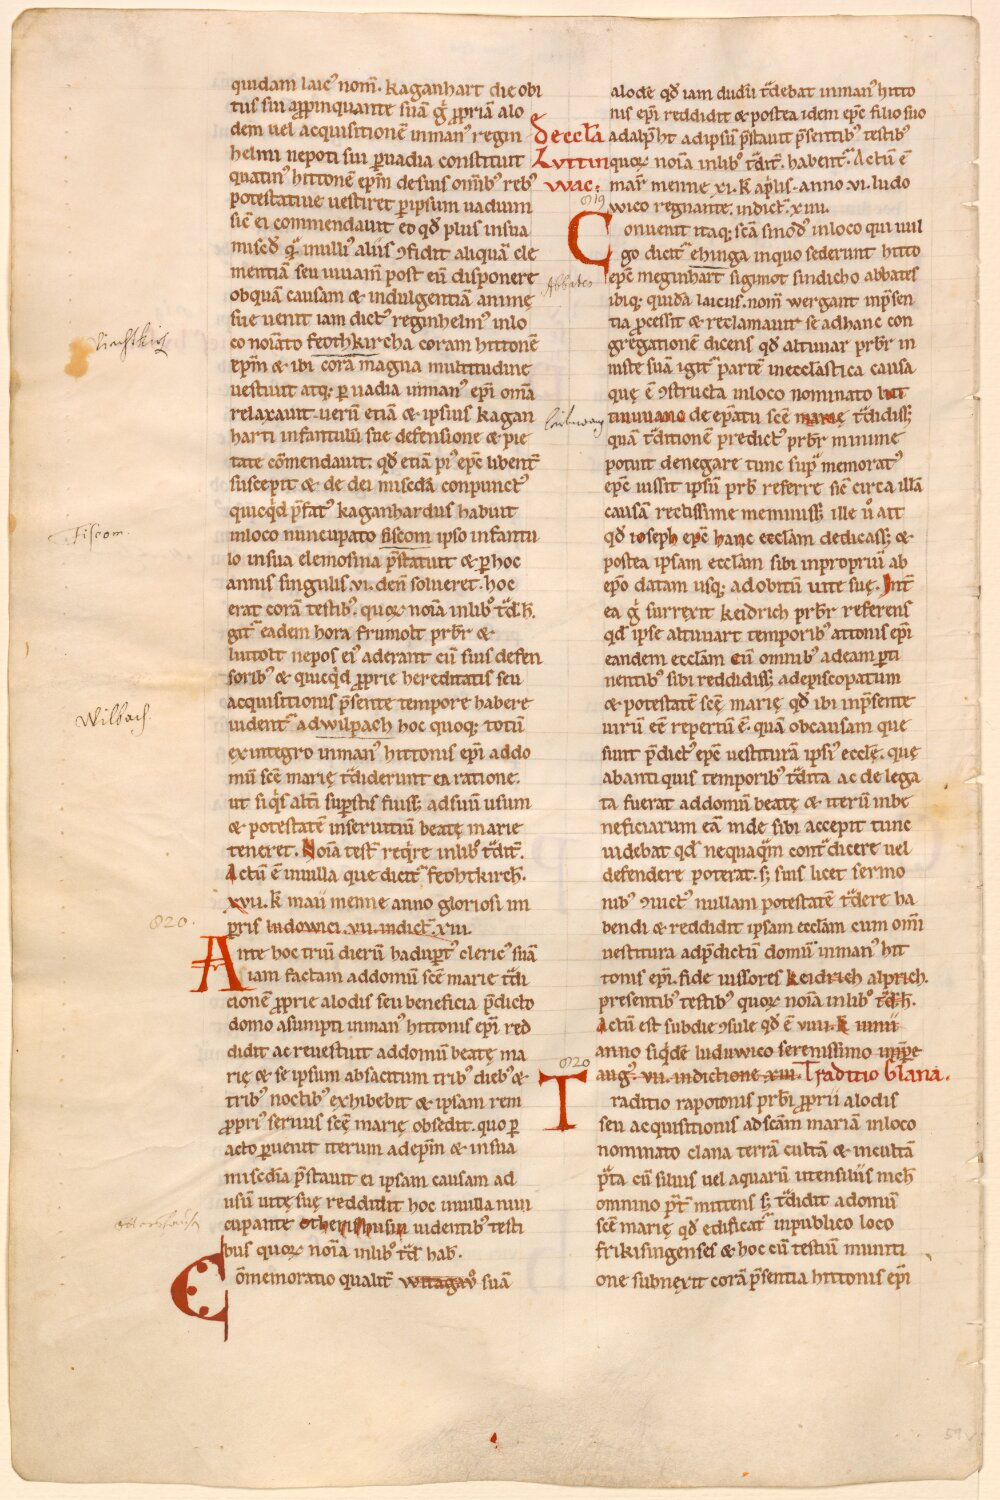 quidam laic᾽ nom̅. kaganhart die obi
tus sui app̲inquante suā g̊ p̲priā alo
dem uel acquisitionē inman᾽ regin
helmi nepoti sui p̲uadia constituit
quatin᾽ hittonē ep̅m de suis om̅ib᾽ reb᾽
potestatiue uestiret p̲ipsum uadium
sic̅ ei commendauit eo qđ plus in sua
miscđ qͣ in ulli᾽ aliis ꝯfidit aliquā cle
mentiā seu uuiam̅ post eū disponere
ob quā causam & indulgentiā animę
sue uenit iam dict᾽ reginhelm᾽ in lo
co noīato feohtkircha coram hittonē
ep̅m & ibi corā magna multitudine
uestiuit atq; p̲ uadia inman᾽ ep̅i om̅ia
relaxauit uerū etiā & ipsius kagan
harti infantulū sue defensione & pie
tate cōmendauit. qđ etiā pi᾽ ep̅c libent̅
suscepit & de dei misc̅dia conpunct᾽
quicq̇d p̅fat᾽ kaganhardus habuit
in loco nuncupato fiscom ipso infantu
lo in sua elemosina p̅statuit & p̲ hoc
annis singulis .vi. den̅ solueret. hoc
erat corā testib᾽. quoꝝ noīa in lib̊ t̅d. h̅.
git᾽ eadem hora frumolt prb̅r &
liuttolt nepos ei᾽ aderant cū suis defen
sorib᾽ & quicq̇d p̲prie hereditatis seu
acquisitionis p̅sente tempore habere
uident᾽ ad wilpach hoc quoq; totū
ex integro in man᾽ hittonis ep̅i ad do
mū sc̅e marię t̅diderunt ea ratione.
ut siq̇s alt̅i sup̲stis fuiss; ad suū usum
& potestatē in seruitiū beatę marie
teneret. Noīa test̅ req̇re in lib᾽ t̅dit̅.
Actū ē in uilla que dicit᾽ feohtkirch.
xvii. k̅ maii menne anno gloriosi im
pris ludowici .vii. indict̅. xiii.
820.
Ante hoc triū dierū hadup̲t᾽ cleric᾽ suā
iam factam ad domū sc̅e marie t̅di
cionē p̲prie alodis seu beneficia p̅dicto
domo asumpti inman᾽ hittonis ep̅i red
didit ac reuestiuit ad domū beatę ma
rię & se ipsum absacitum trib᾽ dieb᾽ &
trib᾽ noctib᾽ exhibebit & ipsam rem
p̲pri᾽ seruus sc̅ę marię obsedit. quo p̲
acto p̲uenit iterum ad ep̅m & in sua
misc̅dia p̅stauit ei ipsam causam ad
usū uitę suę reddidit hoc in uilla nun
cupante othereshusun uidentib᾽ testi
bus quoꝝ noīa in lib᾽ t̅d hab̅.
Cōmemoratio qualit̅ wttagaụ᾽ suā
Viachtkirch
Fiscom.
Wilbach.
alode qđ iam dudū t̅debat inman᾽ hitto
nis ep̅i reddidit & postea idem ep̅c filio suo
adalp̲ht ad ipsū p̅stauit p̅sentib᾽ testib᾽
quoꝝ noīa in lib᾽ t̅dit̅. habent᾽. Actū ē
mar̅ menne xi. k̅ aplis. anno .vi. ludo
wico regnante. indict̅. xiiii.
De eccl̅a
Luttin
wac.
819
Conuenit itaq; sc̅a sinod᾽ in loco qui uul
go dicit᾽ ehinga in quo sederunt hitto
ep̅c meginhart sigimot sindicho abbates
ibiq; quidā laicus. nom̅ wergant in p̅sen
tia p̲cessit & reclamauit se ad hanc con
gregationē dicens qđ altunar prb̅r in
iuste suā igit᾽ partē in eccl̅astica causa
quę ē ꝯstructa in loco nominato lut
tinuuano de ep̅atu sc̅e marię t̅didiss;
quā t̅ditionē predict᾽ prb̅r minime
potuit denegare tunc sup̲ memorat᾽
ep̅c iussit ipsū prb̅ referre sic̅ circa illā
causā rectissime meminiss; ille u̅ ait
qđ ioseph ep̅c hanc eccl̅am dedicass; &
postea ipsam eccl̅am sibi in propriū ab
ep̅o datam usq; ad obitū uite suę. Int̅
ea g̊ surrexit keidrich prb̅r referens
qđ ipse altunart temporib᾽ attonis ep̅i
eandem eccl̅am cū omnib᾽ ad eam p̲ti
nentib᾽ sibi reddidiss; ad episcopatum
& potestatē sc̅ę marię qđ ibi in p̅sente
uirū eē repertū ē. quā ob causam que
siuit p̅dict᾽ ep̅c uestiturā ipsi᾽ eccl̅ę. quę
ab anti quis temporib᾽ t̅dita ac de lega
ta fuerat ad domū beatę & iterū in be
neficiarum eā inde sibi accepit tunc
uidebat qđ nequaq̇m cont̅dicere uel
defendere poterat. s; suis licet sermo
nib᾽ ꝯuict᾽ nullam potestatē t̅dere ha
bendi & reddidit ipsam eccl̅am cum om̅i
uestitura ad p̅dictū domū inman᾽ hit
tonis ep̅i. fide iussores keidrich alprich.
presentib᾽ testib᾽ quoꝝ noīa in lib᾽ t̅d. h̅.
Actū est sub die ꝯsule qđ ē viiii. k̅ iunii
anno siq̇dē luduwico serenissimo imp̲e
aug᾽. vii. indictione xiii. Traditio Glana.
820
Traditio rapotonis prb̅i p̲prii alodis
seu acquisitionis ad sc̅am mariā in loco
nominato clana terrā cultā & incultā
p̅ta cū siluis uel aquarū utensiliis meh̅
omnino p̅t̅ mittens s; t̅didit ad domū
sc̅ę marię qđ edificat᾽ in publico loco
frikisingenses & hoc cū testiū muniti
one subnexit corā p̅sentia hittonis ep̅i
Abbates
59v